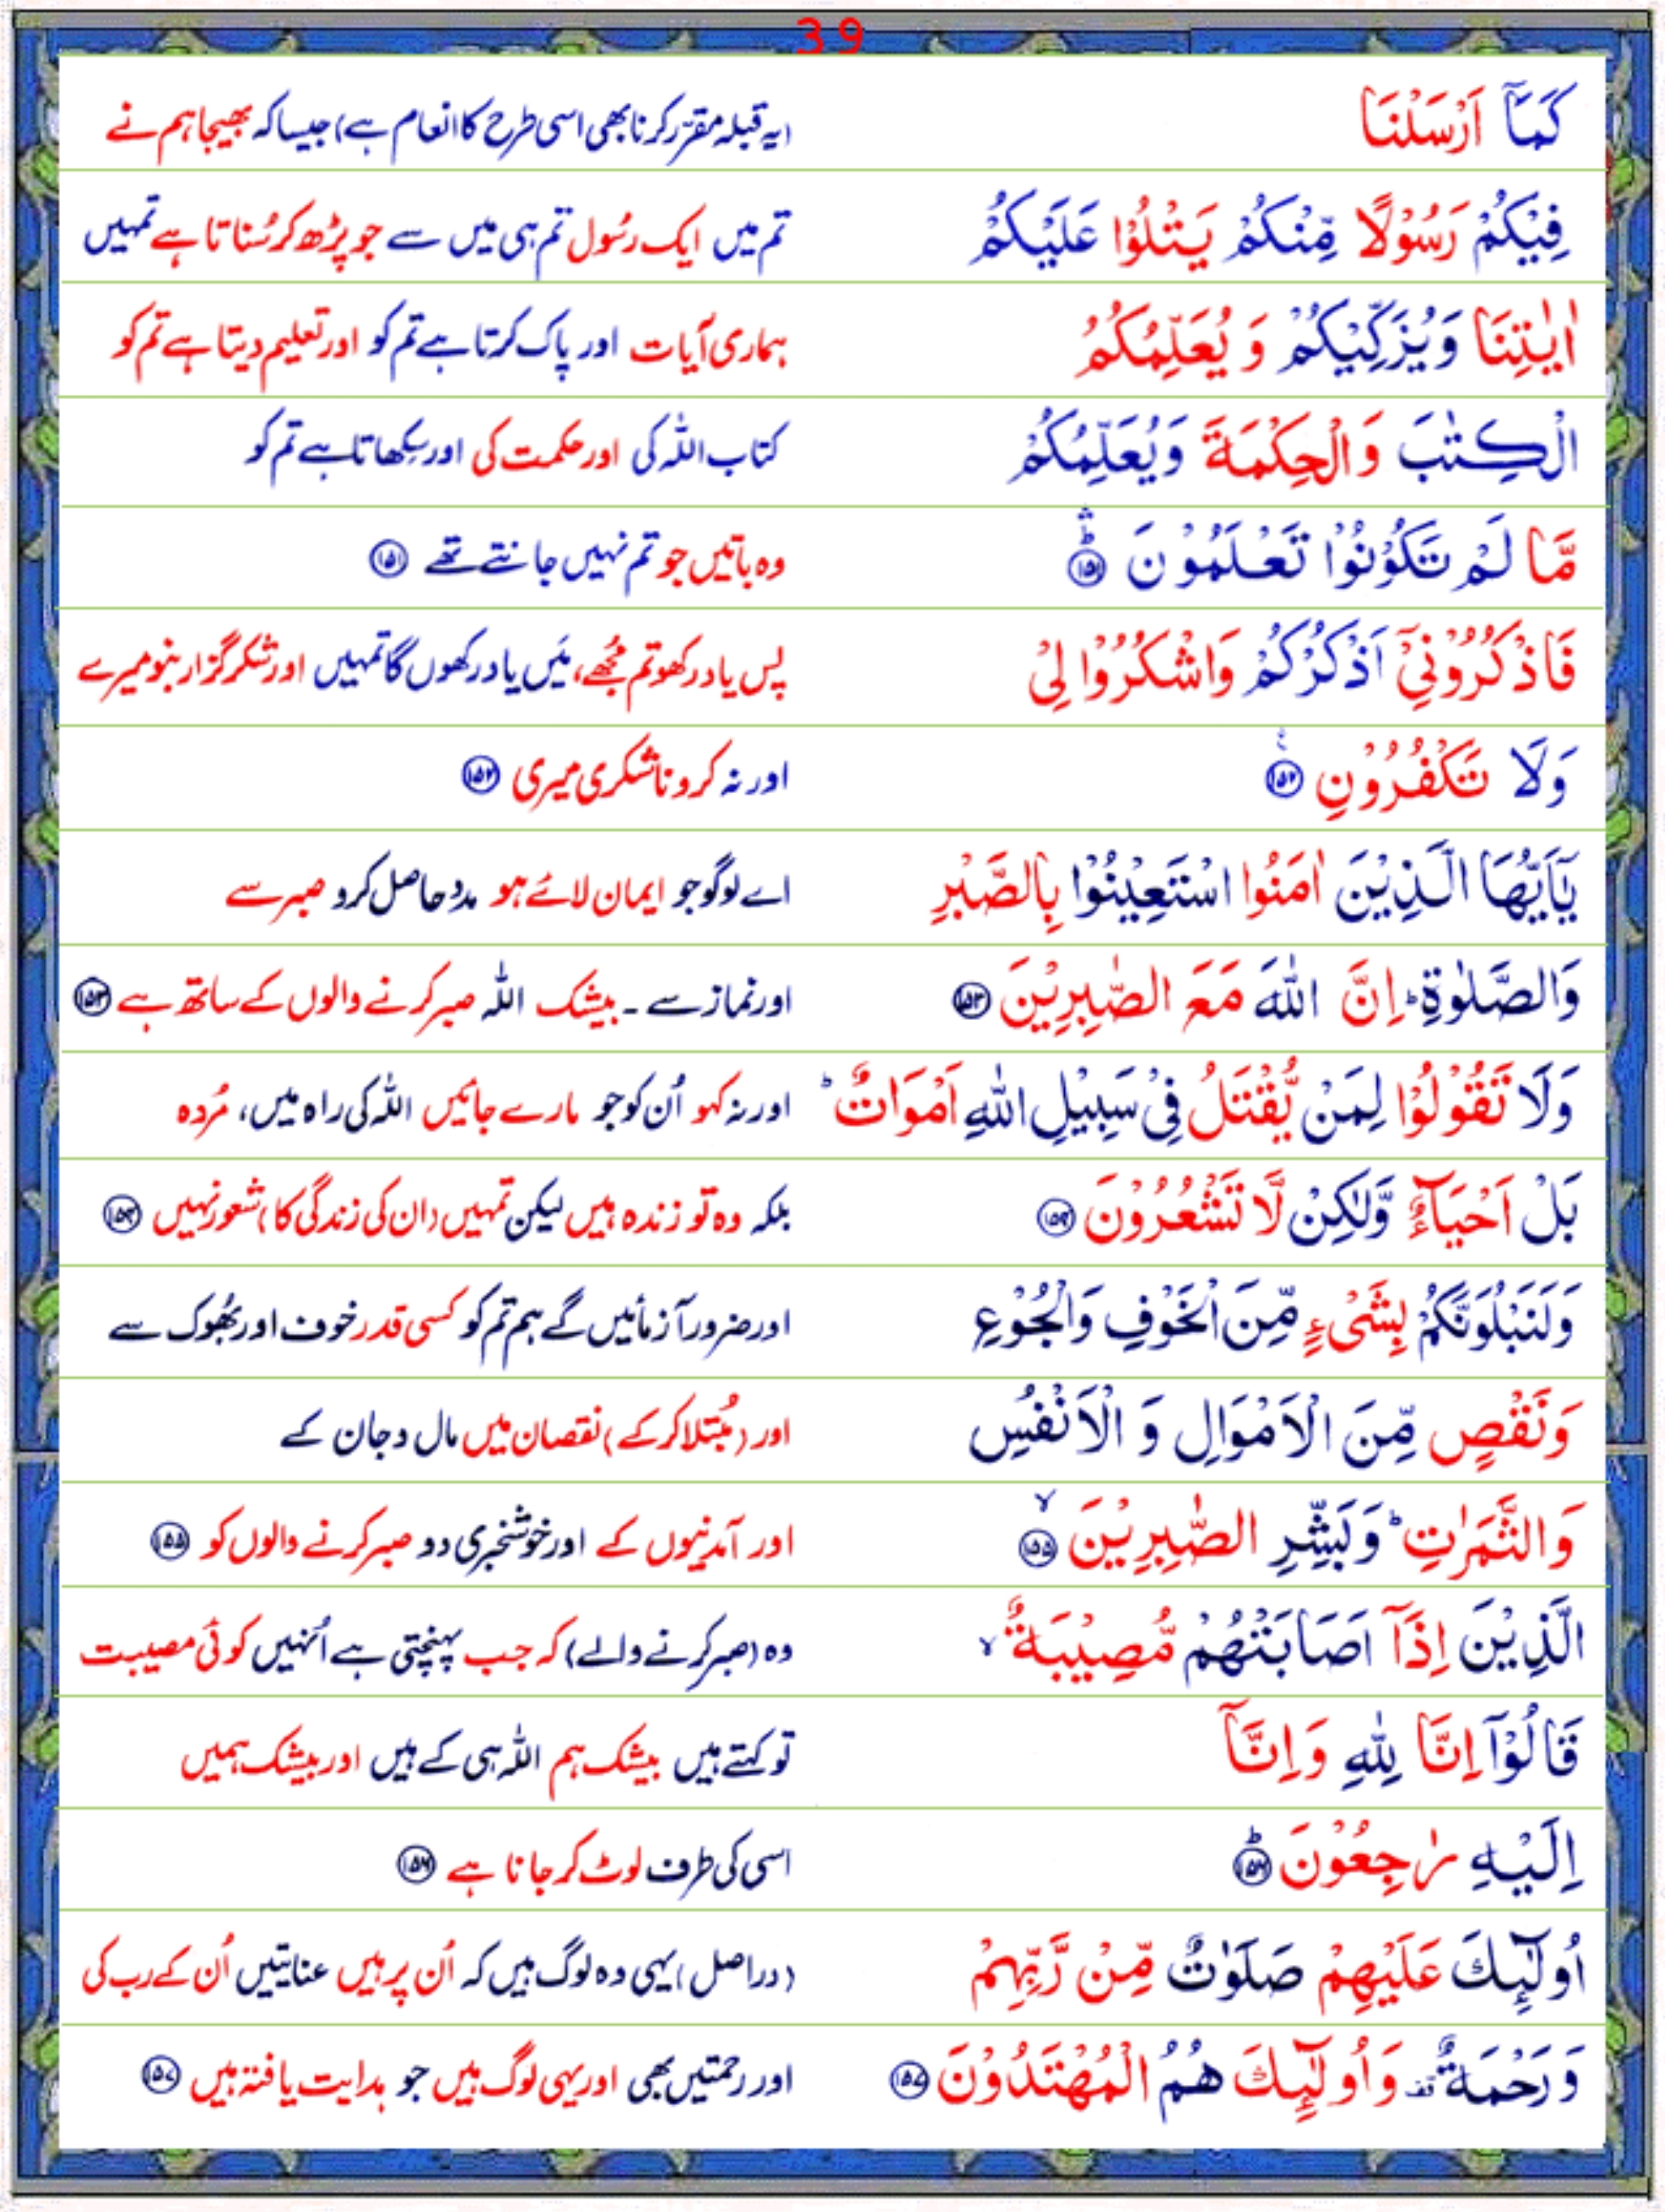 39
كَمَآ اَرْسَلْنَا (یہ قبلہ مقرّر کرنا بھی اسی طرح کا انعام ہے) جیسا کہ بھیجا ہم نے
فِيْكُمْ رَسُوْلًا مِّنْكُمْ يَتْلُوْا عَلَيْكُمْ تم میں ایک رسُول تم ہی میں سے جو پڑھ کر سُناتا ہے تمہیں
اٰيٰتِنَا وَيُزَكِّيْكُمْ وَيُعَلِّمُكُمُ ہماری آیات اور پاک کرتا ہے تم کو اور تعلیم دیتا ہے تم کو
الْكِتٰبَ وَالْحِكْمَةَ وَيُعَلِّمُكُمْ کتاب اللہ کی اور حکمت کی اور سِکھاتا ہے تم کو
مَّا لَمْ تَكُوْنُوْا تَعْلَمُوْنَ ۛؕ ۱۵۱ وہ باتیں جو تم نہیں جانتے تھے ۱۵۱
فَاذْكُرُوْنِيْٓ اَذْكُرْكُمْ وَاشْكُرُوْا لِيْ پس یاد رکھو تم مُجھے، مَیں یاد رکھوں گا تمہیں اور شکر گزار بنو میرے
وَلَا تَكْفُرُوْنِ ۱۵۲ اور نہ کرو ناشکری میری ۱۵۲
يٰٓاَيُّهَا الَّذِيْنَ اٰمَنُوا اسْتَعِيْنُوْا بِالصَّبْرِ اے لوگو جو ایمان لائے ہو مدد حاصل کرو صبر سے
وَالصَّلٰوةِ ؕ اِنَّ اللّٰهَ مَعَ الصّٰبِرِيْنَ ۱۵۳ اور نماز سے ۔ بیشک اللہ صبر کرنے والوں کے ساتھ ہے ۱۵۳
وَلَا تَقُوْلُوْا لِمَنْ يُّقْتَلُ فِيْ سَبِيْلِ اللّٰهِ اَمْوَاتٌ ؕ اور نہ کہو اُن کو جو مارے جائیں اللہ کی راہ میں، مُردہ
بَلْ اَحْيَآءٌ وَّلٰكِنْ لَّا تَشْعُرُوْنَ ۱۵۴ بلکہ وہ تو زندہ ہیں لیکن تمہیں (ان کی زندگی کا) شعور نہیں ۱۵۴
وَلَنَبْلُوَنَّكُمْ بِشَيْءٍ مِّنَ الْخَوْفِ وَالْجُوْعِ اور ضرور آزمائیں گے ہم تم کو کسی قدر خوف اور بھُوک سے
وَنَقْصٍ مِّنَ الْاَمْوَالِ وَ الْاَنْفُسِ اور (مُبتلا کر کے) نقصان میں مال و جان کے
وَالثَّمَرٰتِ ؕ وَبَشِّرِ الصّٰبِرِيْنَ ۙ ۱۵۵ اور آمدنیوں کے اور خوشخبری دو صبر کرنے والوں کو ۱۵۵
الَّذِيْنَ اِذَآ اَصَابَتْهُمْ مُّصِيْبَةٌ ۙ وہ (صبر کرنے والے) کہ جب پہنچتی ہے اُنہیں کوئی مصیبت
قَالُوْٓا اِنَّا لِلّٰهِ وَاِنَّآ تو کہتے ہیں بیشک ہم اللہ ہی کے ہیں اور بیشک ہمیں
اِلَيْهِ رٰجِعُوْنَ ؕ ۱۵۶ اسی کی طرف لوٹ کر جانا ہے ۱۵۶
اُولٰٓئِكَ عَلَيْهِمْ صَلَوٰتٌ مِّنْ رَّبِّهِمْ (دراصل) یہی وہ لوگ ہیں کہ اُن پر ہیں عنایتیں اُن کے رب کی
وَرَحْمَةٌ ۣ وَاُولٰٓئِكَ هُمُ الْمُهْتَدُوْنَ ۱۵۷ اور رحمتیں بھی اور یہی لوگ ہیں جو ہدایت یافتہ ہیں ۱۵۷